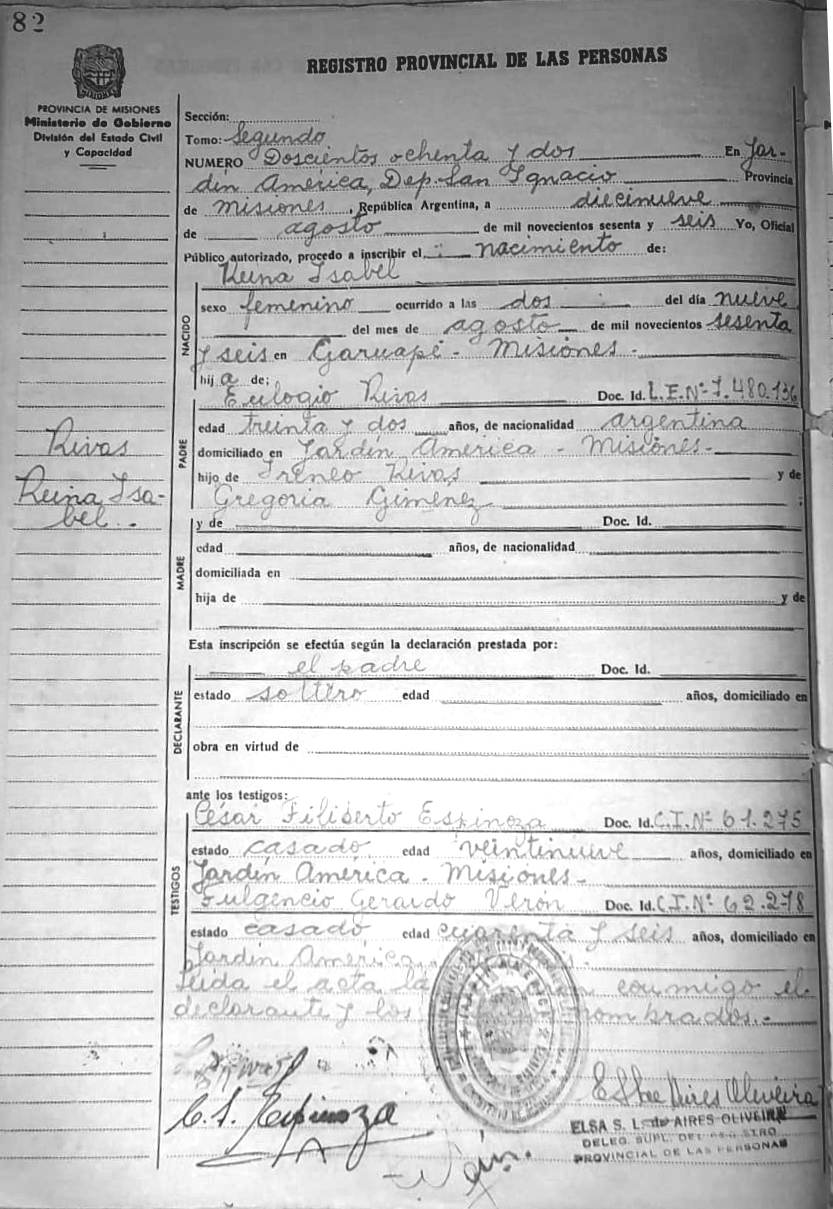 82
REGISTRO PROVINCIAL DE LAS PERSONAS
PROVINCIA DE MISIONES
Ministerio de Gobierno
División del Estado Civil
y Capacidad
Sección:
Tomo: Segundo
NUMERO Doscientos ochenta y dos En Jar-
dín América, Dep. San Ignacio Provincia
de Misiones, República Argentina, a diecinueve
de agosto de mil novecientos sesenta y seis Yo, Oficial
Público autorizado, procedo a inscribir el nacimiento de:
Reina Isabel
NACIDO
sexo femenino ocurrido a las dos del día nueve
del mes de agosto de mil novecientos sesenta
y seis en Garuapé - Misiones -
hija de:
Eulogio Rivas Doc. Id. L.E.Nº 7.480.136
PADRE
edad treinta y dos años, de nacionalidad argentina
domiciliado en Jardín América - Misiones -
hijo de Ireneo Rivas y de
Gregoria Gimenez ;
Rivas
Reina Isa-
bel -
MADRE
y de Doc. Id.
edad años, de nacionalidad
domiciliada en
hija de y de
Esta inscripción se efectúa según la declaración prestada por:
DECLARANTE
el padre Doc. Id.
estado soltero edad años, domiciliado en
obra en virtud de
ante los testigos:
TESTIGOS
César Filiberto Espinoza Doc. Id. C.I.Nº 61.275
estado casado edad veintinueve años, domiciliado en
Jardín América - Misiones -
Fulgencio Gerardo Verón Doc. Id. C.I.Nº 62.278
estado casado edad cuarenta y seis años, domiciliado en
Jardín América
Leida el acta la conmigo el
declarante y los nombrados. -
C. F. Espinoza
Elsa Aires Oliveira
ELSA S. L. de AIRES OLIVEIRA
DELEG. SUPL. DEL REGISTRO
PROVINCIAL DE LAS PERSONAS